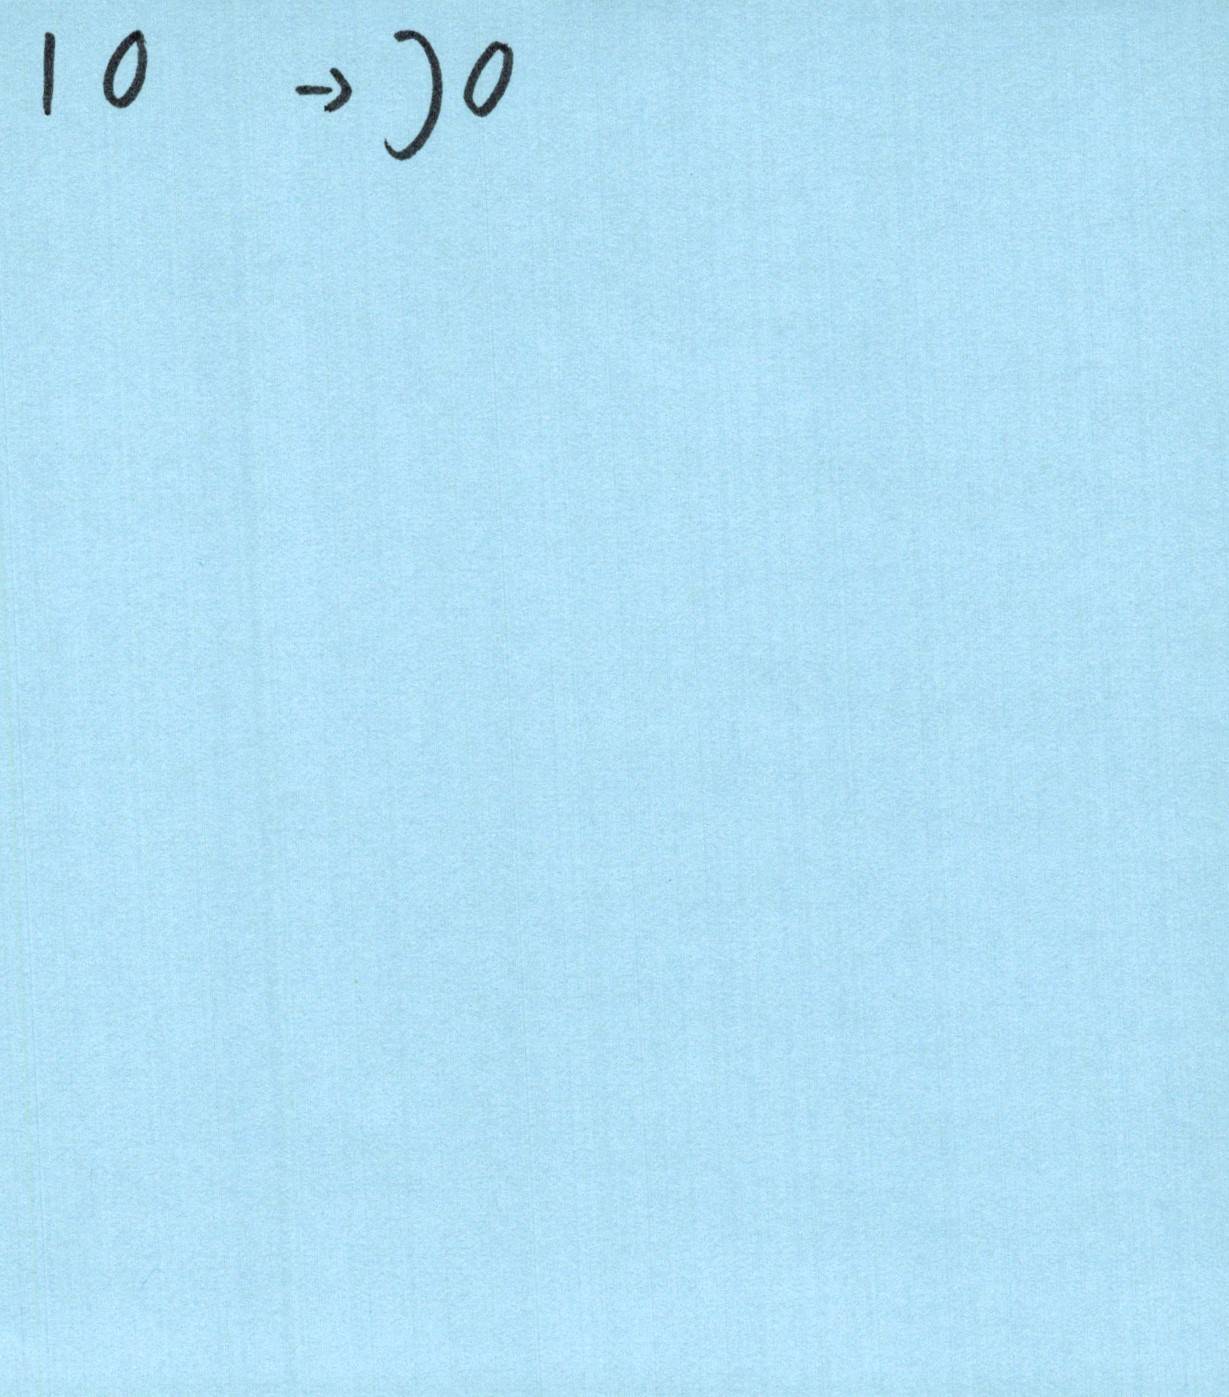 10 → )0